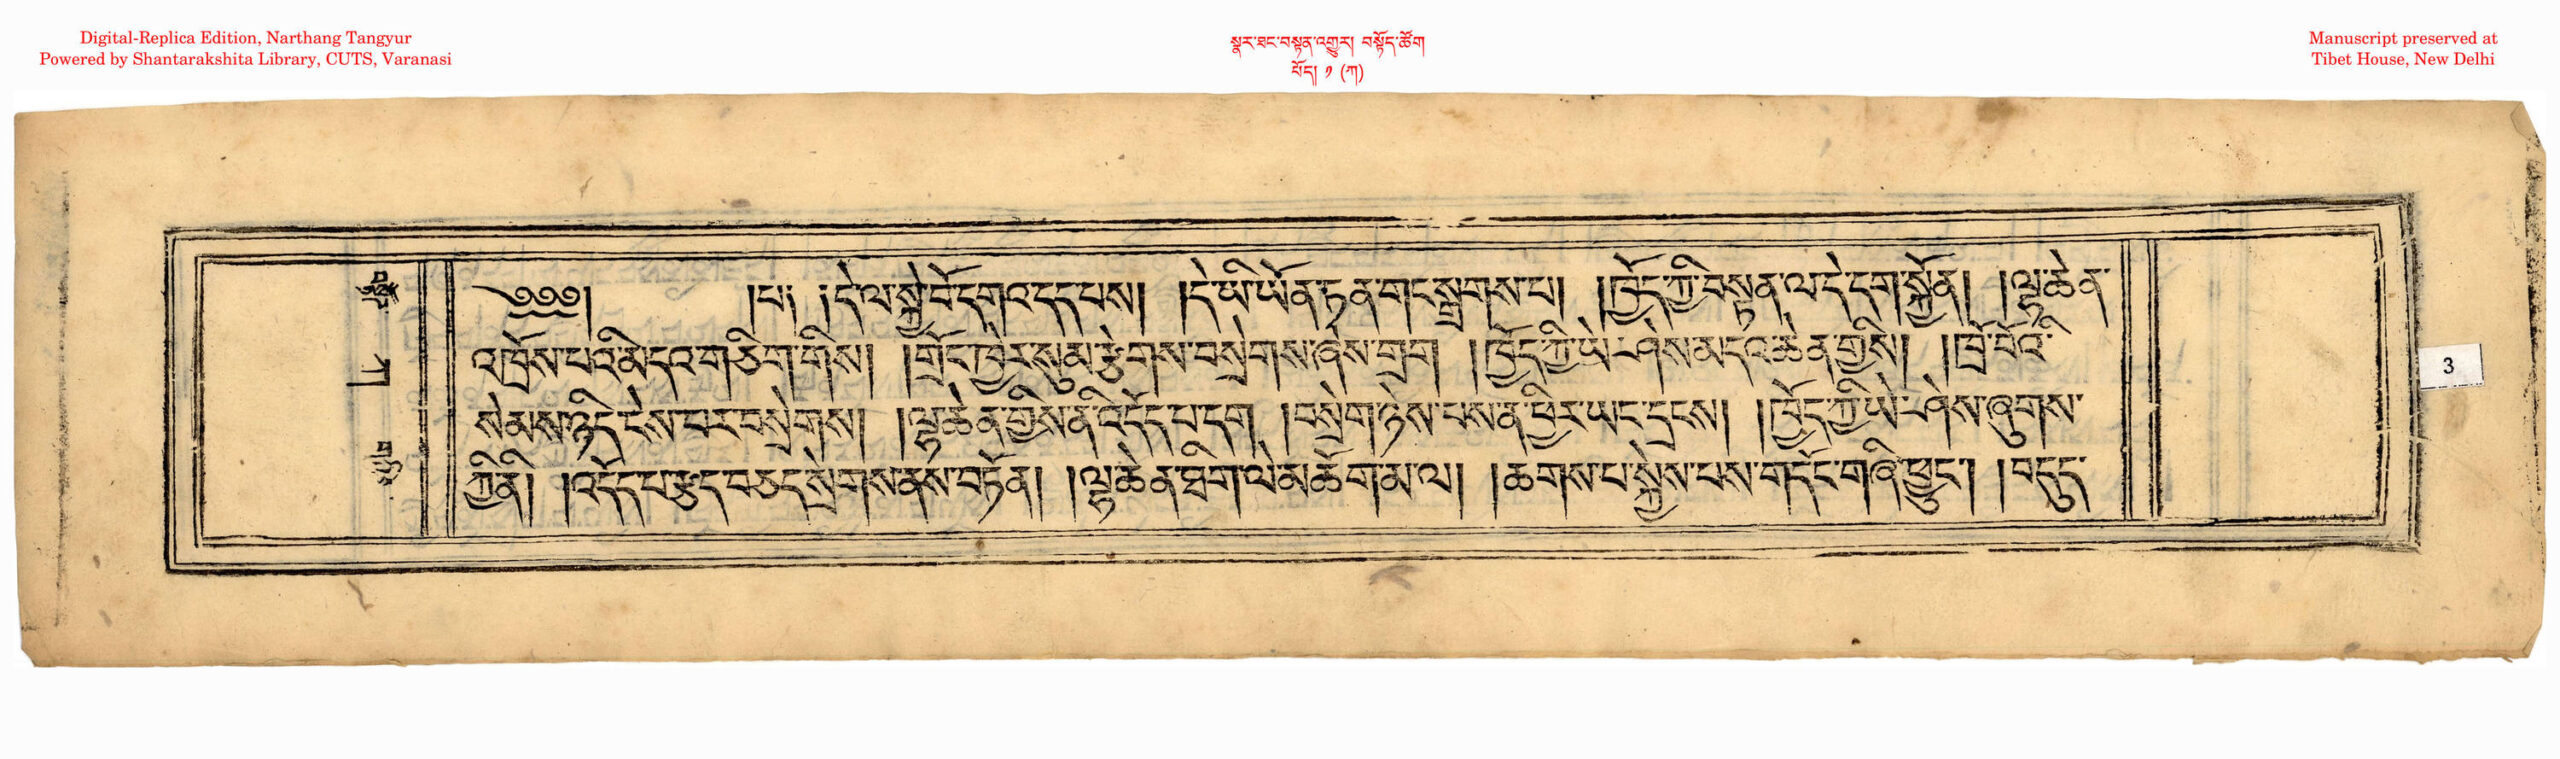 Digital-Replica Edition, Narthang Tangyur
Powered by Shantarakshita Library, CUTS, Varanasi
སྣར་ཐང་བསྟན་འགྱུར། བསྟོད་ཚོག
པོད། ༡ (ཀ)
Manuscript preserved at
Tibet House, New Delhi
༄༅༅། །པ། །དེ་ལ་སྐྱེ་བོ་དགའ་དད་པས། །དེ་ཡི་ཡོན་ཏན་གང་སྒྲགས་པ། །ཁྱོད་ཀྱི་བསྟན་ལ་དེ་དག་སྐྱོན། །ལྷ་ཆེན་
འཁྲོས་པའི་མདའ་གཅིག་གིས། །གྲོང་ཁྱེར་སུམ་རྩེགས་བསྲེགས་ཞེས་གྲག །ཁྱོད་ཀྱི་ཡེ་ཤེས་མདའ་ཆེན་གྱིས། །ཁྲོ་བོའི་
སེམས་ཉིད་ངེས་པར་བསྲེགས། །ལྷ་ཆེན་གྱིས་ནི་འདོད་པ་དག །བསྲེག་ཉེས་པས་ན་ཕྱིར་ཡང་དྲངས། །ཁྱོད་ཀྱི་ཡེ་ཤེས་ཞུགས་
ཀྱིནི། །འདོད་པ་རྩད་བཅད་སྲེགས་ནས་བཏོན། །ལྷ་ཆེན་ཐིག་ལེ་མཆོག་མ་ལ། །ཆགས་པ་སྐྱེས་པས་གདོང་བཞི་ཕྱུང་། །བདུད་
3